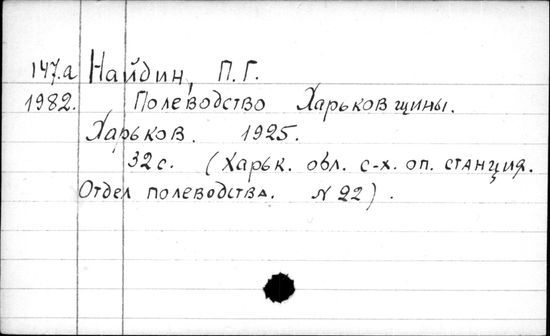 147.a Найдин, П.Г.
1982. Полеводство Харьковщины.
Харьков. 1925.
32 с. (Харьк. обл. с-х. оп. станция.
Отдел полеводства. N 22).